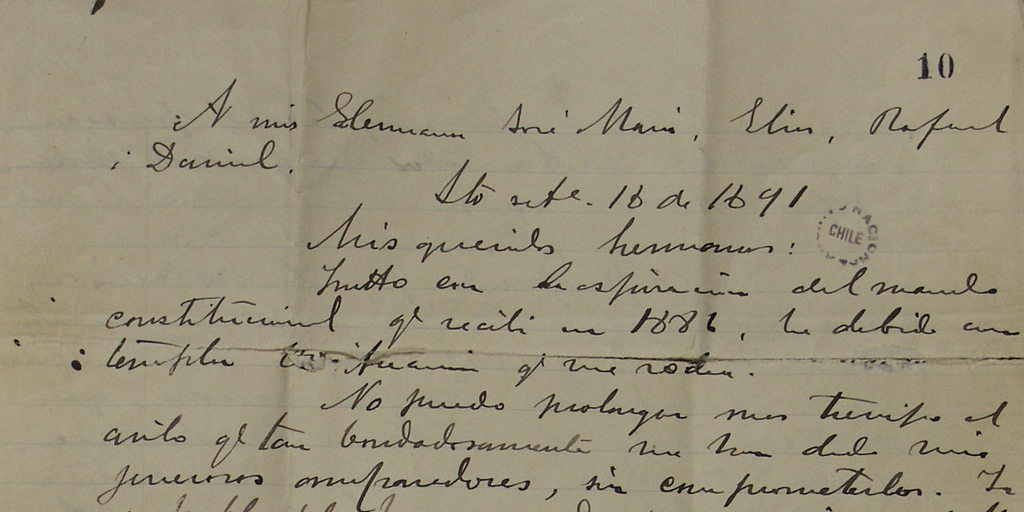 10
A mis Hermanos José María, Elías, Rafael
i Daniel.
Sto sete. 18 de 1891
Mis queridos hermanos:
CHILE
Junto con la espiración del mando
constitucional qe recibí en 1886, he debido con
templar la situación qe me rodea.
No puedo prolongar mas tiempo el
asilo qe tan bondadosamente me han dado mis
jenerosos amparadores, sin comprometerlos.